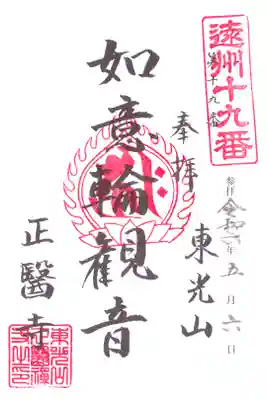 遠州十九番
第十九番
奉拝
東光山
参拝 令和 年 五 月 六 日
如意輪観音
正醫寺